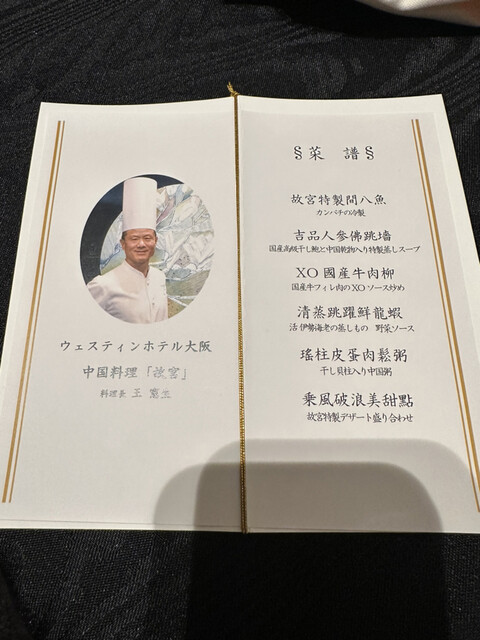 ウェスティンホテル大阪
中国料理「故宮」
料理長 王
§菜 譜§
故宮特製間八魚
カンパチの冷製
吉品人參佛跳墻
国産高級干し鮑と中国乾物入り特製蒸しスープ
XO國産牛肉柳
国産牛フィレ肉のXOソース炒め
清蒸跳躍鮮龍蝦
活伊勢海老の蒸しもの 野菜ソース
瑤柱皮蛋肉鬆粥
干し貝柱入り中国粥
乘風破浪美甜點
故宮特製デザート盛り合わせ